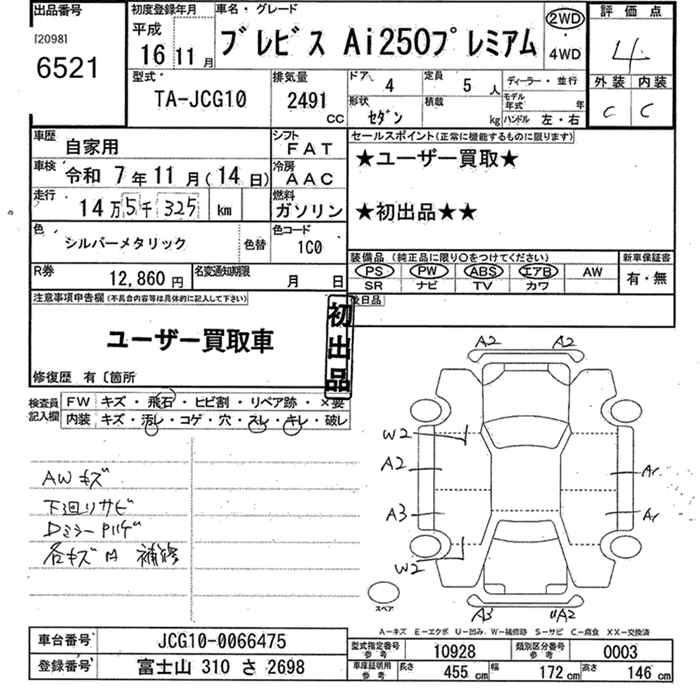 出品番号
[2098]
6521
初度登録年月
平成
16年 11月
車名・グレード
ブレビス Ai250プレミアム
2WD
4WD
評価点
4
外装 内装
C C
型式
TA-JCG10
排気量
2491
CC
ドア 4
定員 5 人
形状 セダン
積載 kg
ディーラー・並行
モデル年式 年
ハンドル 左・右
車歴
自家用
シフト
FAT
車検
令和 7年 11月(14日)
冷房
AAC
走行
14万5千325 km
燃料
ガソリン
色
シルバーメタリック
色替
色コード
1C0
R券
12,860円
名変通知期限
月 日
セールスポイント(正常に機能するものに限ります)
★ユーザー買取★
★初出品★★
装備品(純正品に限り○をつけてください)
PS PW ABS エアB AW
SR ナビ TV カワ
新車保証書
有・無
後日品
注意事項申告欄(不具合内容等は具体的に記入して下さい)
ユーザー買取車
初出品
修復歴 有〔箇所
検査員記入欄
FW キズ・飛石・ヒビ割・リペア跡・×要
内装 キズ・汚レ・コゲ・穴・スレ・キレ・破レ
AWキズ
下廻りサビ
DミラーPハゲ
各キズ凹 補修
A2 A2
W2
A2
A3
W2
A3 A2
スペア
A−キズ E−エクボ U−凹み W−補修跡 S−サビ C−腐食 XX−交換済
車台番号
JCG10-0066475
登録番号
富士山 310 さ 2698
型式指定番号参考
10928
類別区分番号参考
0003
車庫証明用参考
長さ 455 cm
幅 172 cm
高さ 146 cm